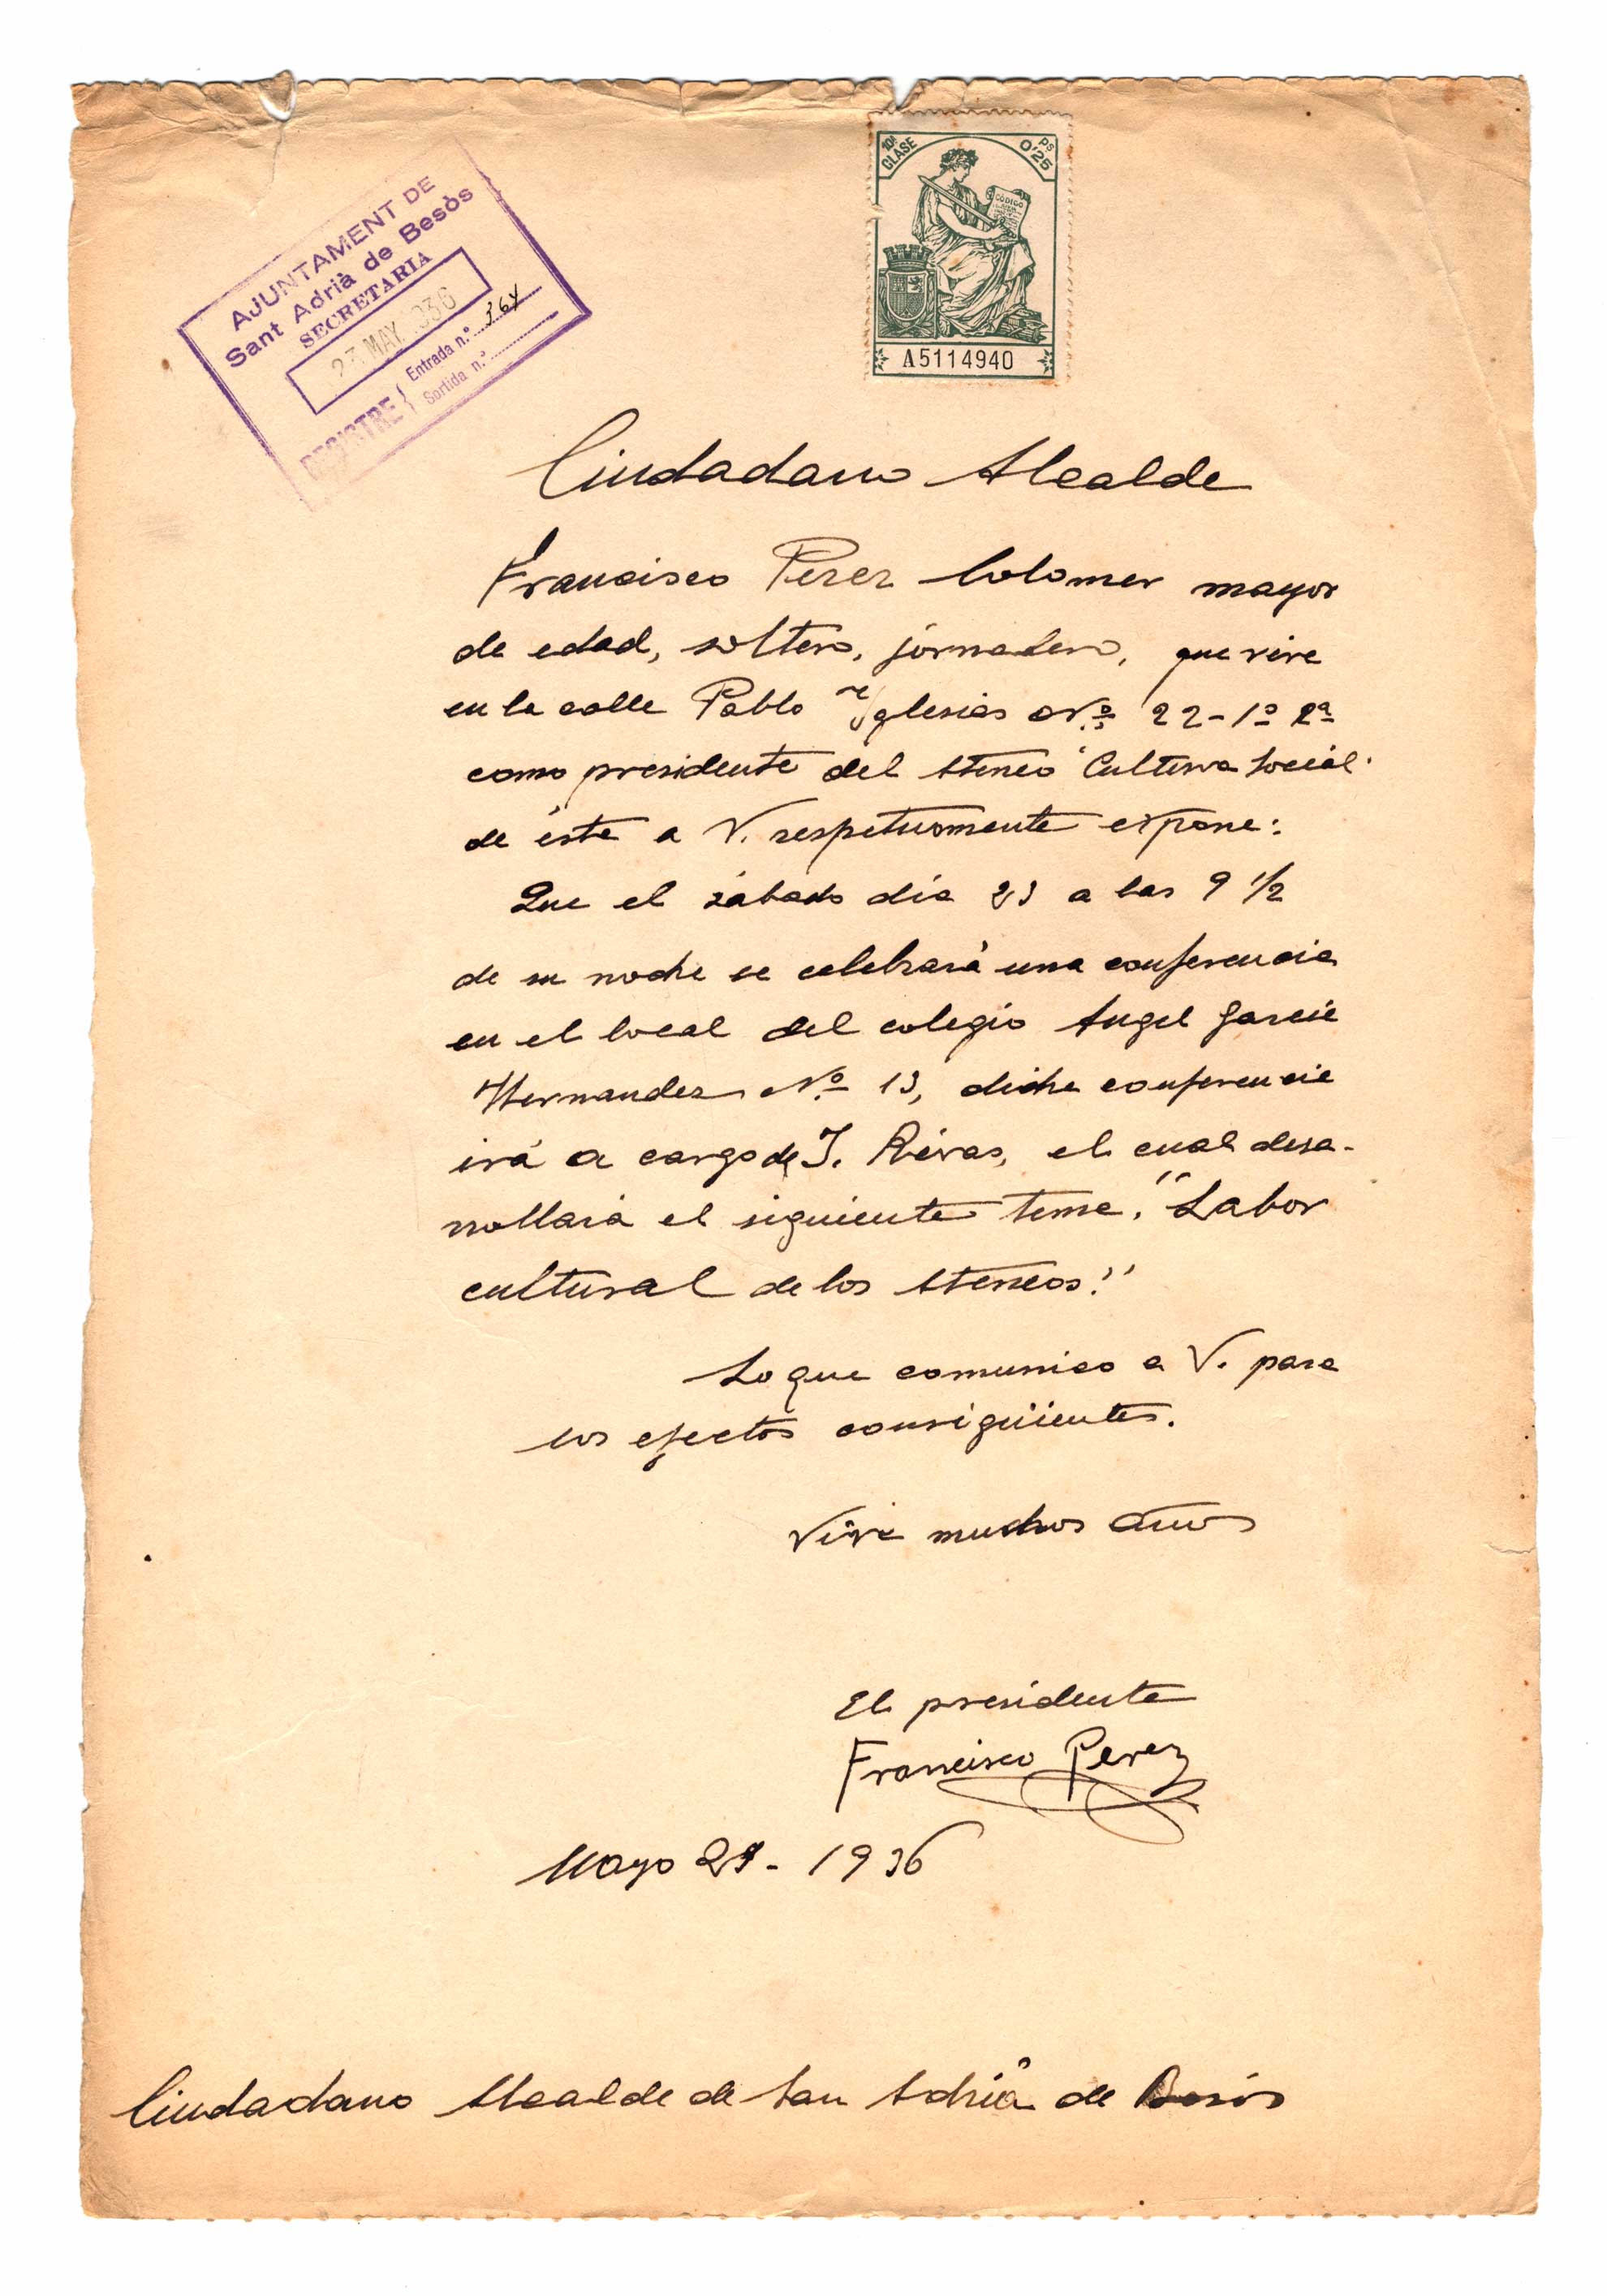 AJUNTAMENT DE
Sant Adrià de Besòs
SECRETARIA
MAY. 1936
REGISTRE { Entrada n.º 364
Sortida n.º
10ª CLASE
PS 0'25
CÓDIGO
A5114940
Ciudadano Alcalde
Francisco Perez Colomer mayor
de edad, soltero, jornalero, que vive
en la calle Pablo Yglesias Nº 22-1º 2ª
como presidente del Ateneo "Cultura Social"
de éste a V. respetuomente expone:
Que el sábado día 23 a las 9 1/2
de su noche se celebrará una conferencia
en el local del colegio Angel Garcia
Hernandez Nº 13, dicha conferencia
irá a cargo de J. Rivas, el cual desa-
rrollará el siguiente tema. "Labor
cultural de los Ateneos."
Lo que comunico a V. para
los efectos consigüientes.
Viva muchos años
El presidente
Francisco Perez
Mayo - 1936
Ciudadano Alcalde de San Adriá de Besós